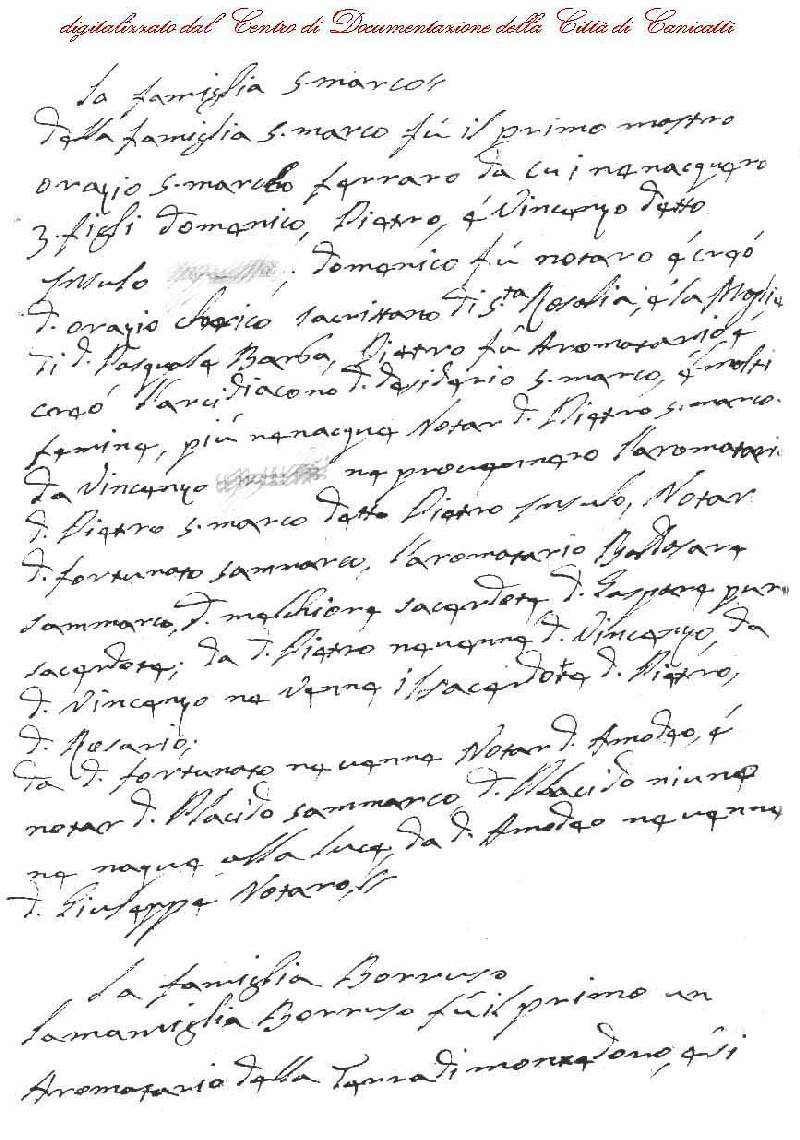 digitalizzato dal Centro di Documentazione della Città di Canicattì
La famiglia S. marco
della famiglia S. marco fù il primo mastro
orazio S. marco ferraro da cui nenacquero
3. figli domenico, Pietro, é Vincenzo detto
domenico fú notaro é creó
d. orazio cherico sacristano di S.ta Rosalia, é la Moglie
di d. Pasquale Barba, Pietro fú Aromatario é
creó l'arcidiacono d. desiderio S. marco, é molti
femine, più nenacque Notar d. Pietro S. marco.
da Vincenzo ne provennero l'aromatari
d. Pietro S. marco detto Pietro Notar
d. fortunato sammarco, l'aromatario Baldasare
sammarco, d. melchiore sacerdote d. Gaspare pur
sacerdote; da d. Pietro nevenne d. Vincenzo, da
d. Vincenzo ne venne il sacerdote d. Pietro,
d. Rosario;
da d. fortunato nevenne Notar d. Amodeo, é
notar d. Placido sammarco d. Placido niuno
ne naque alla luce, da d. Amodeo nevenne
d. Giuseppe Notaro
La famiglia Borruso
lamamiglia Borruso fú il primo un
Aromatario della Terra di montedoro, é si